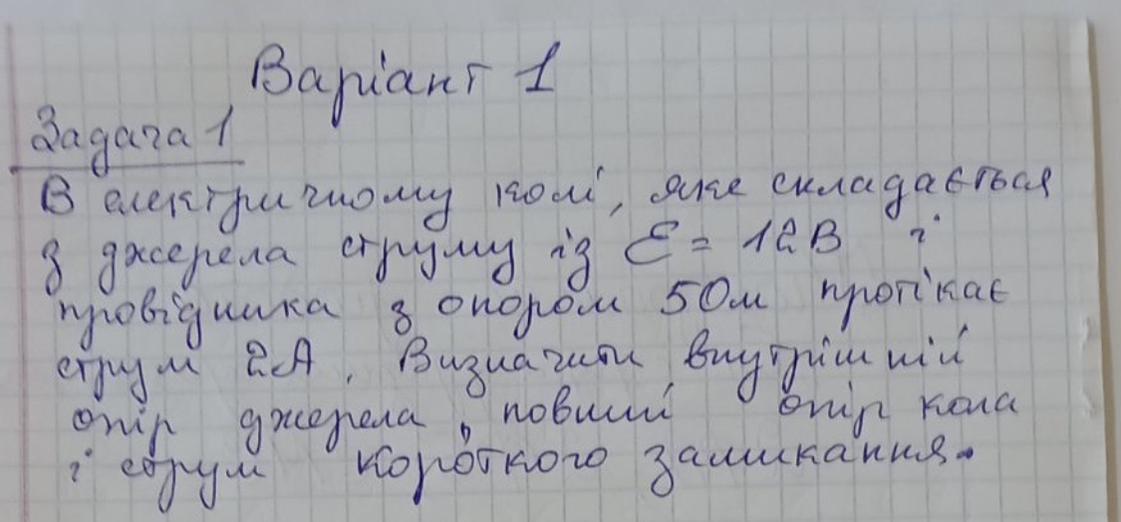 Варіант 1
Задача 1
В електричному колі, яке складається
з джерела струму із ℰ = 12В і
провідника з опором 5Ом протікає
струм 2А. Визначити внутрішній
опір джерела, повний опір кола
і струм короткого замикання.